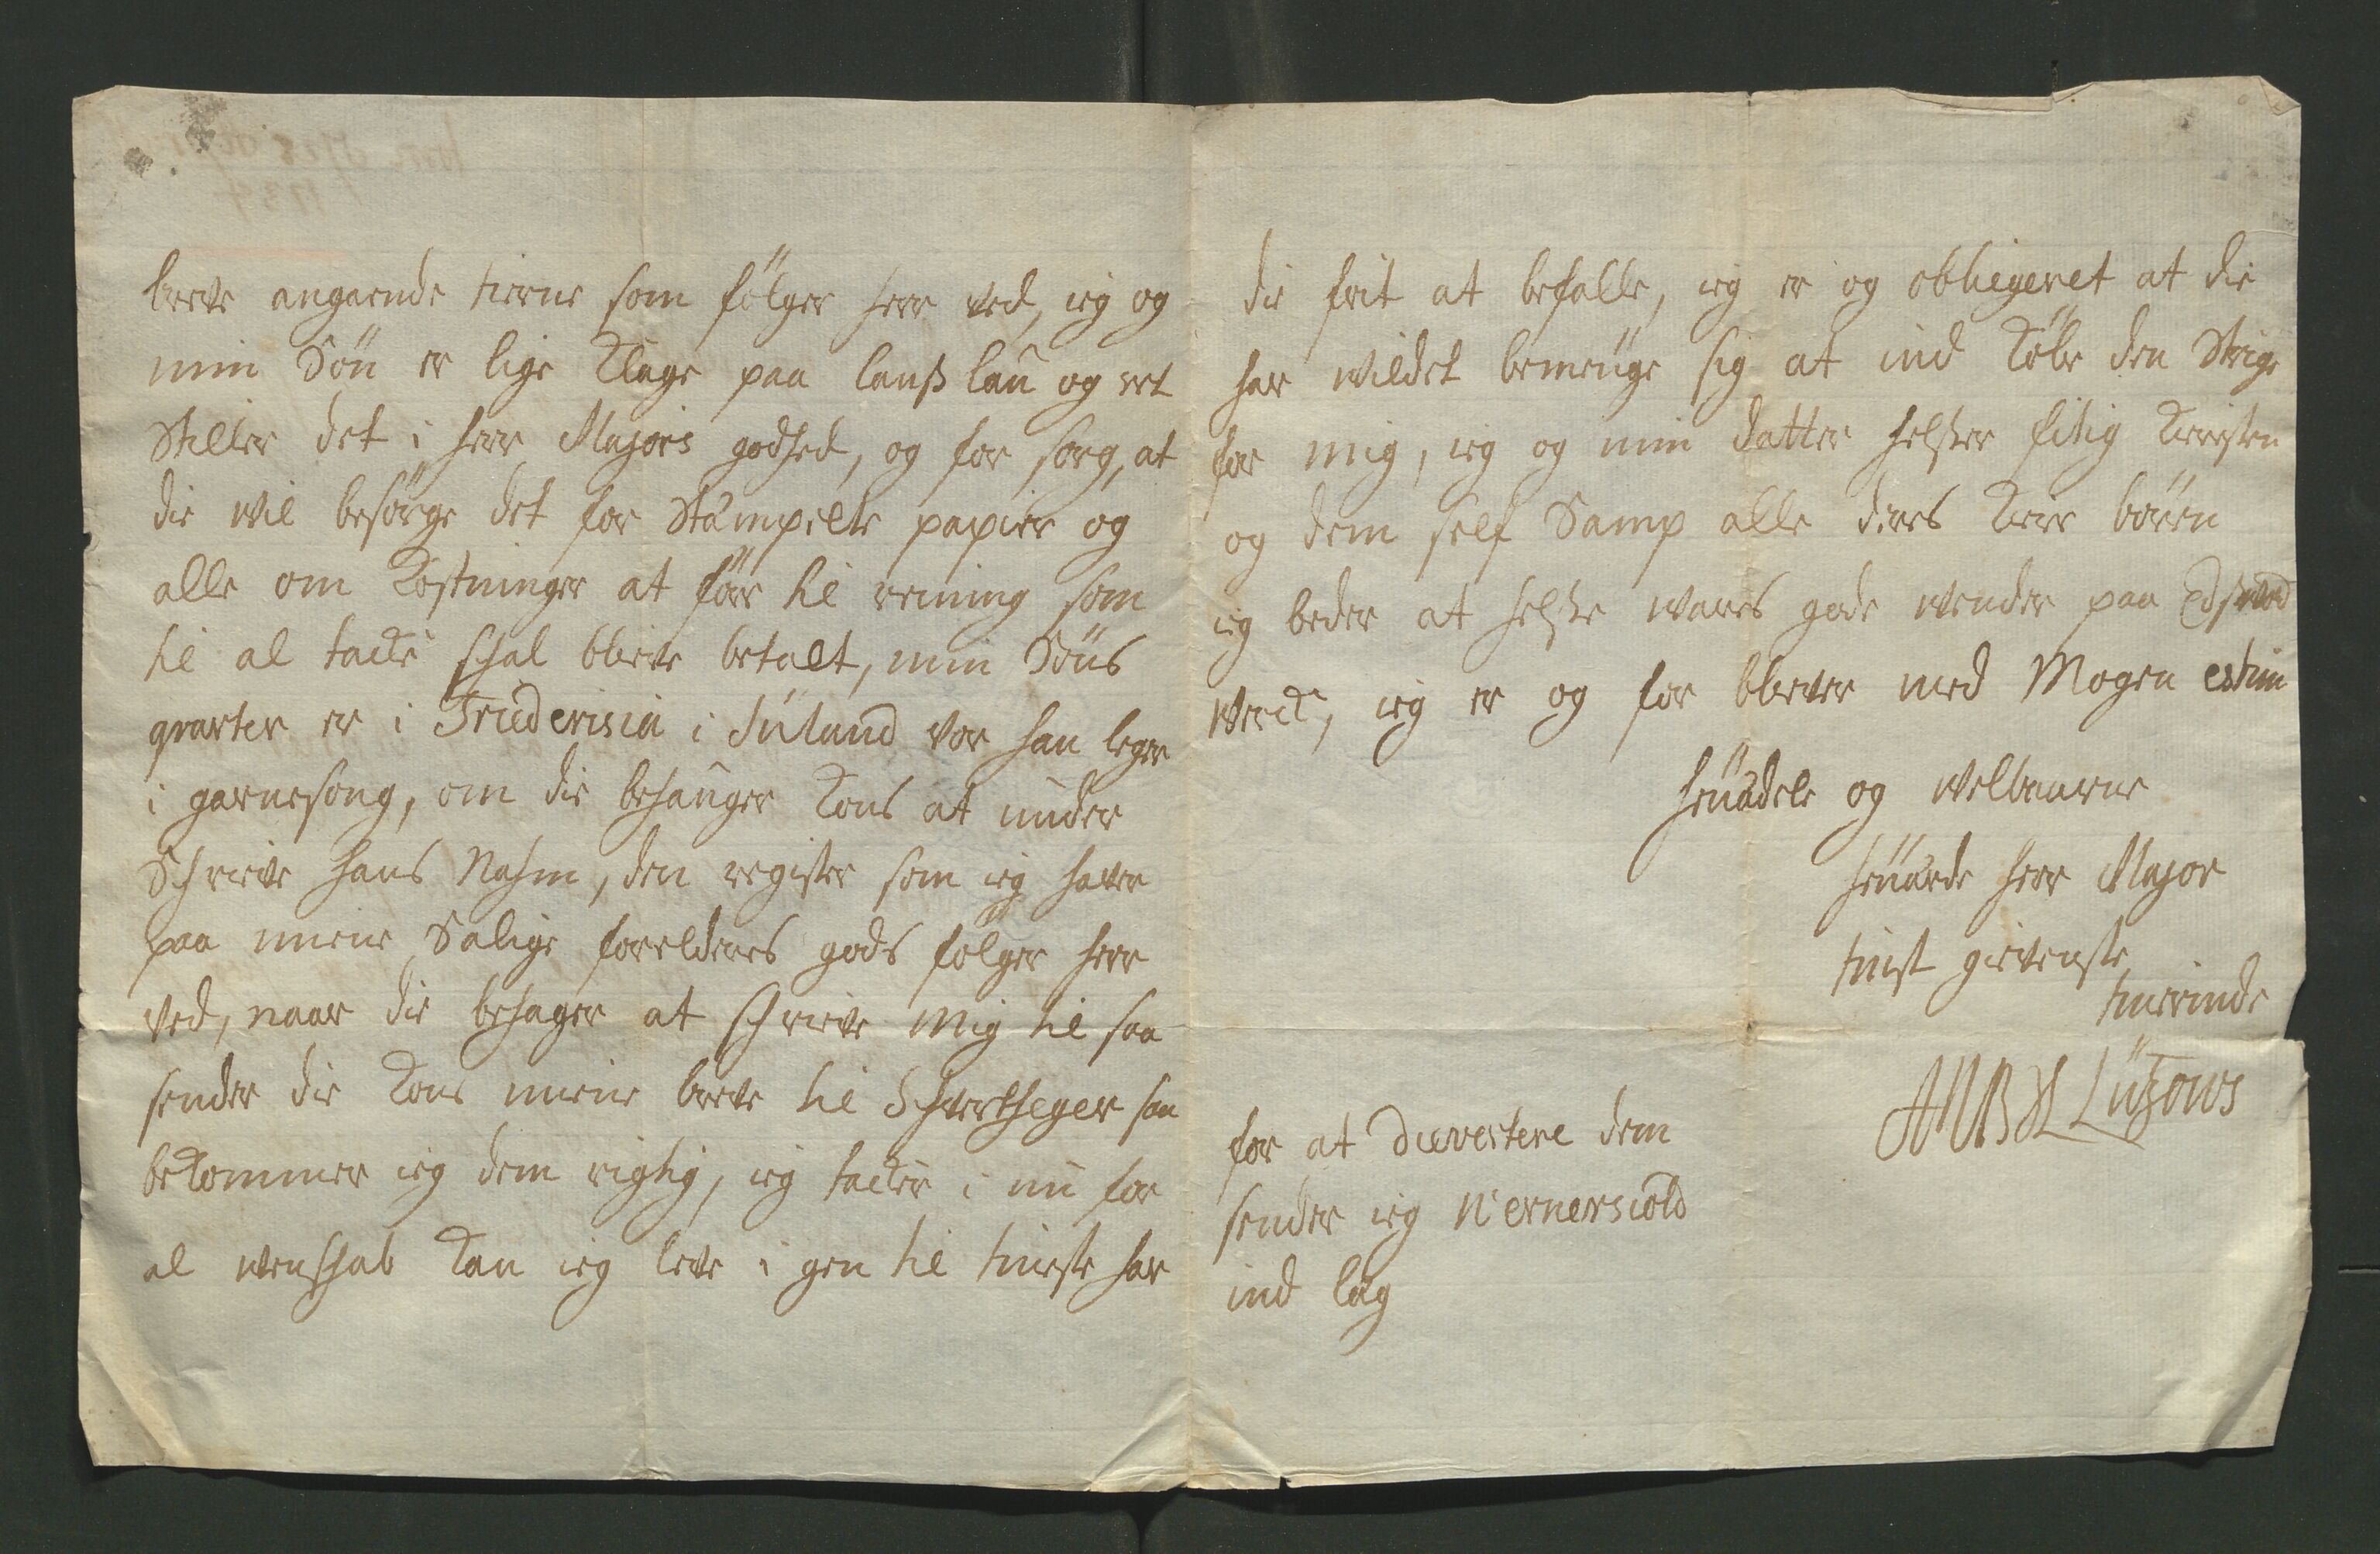 breve angaende tiene som fölger herr ved, ieg og
min Sön er lige Klage paa lanß lau og ret
Stiller det i herr Majors godhed, og for sorg, at
die wil besörge det for Stampelte papier og
alle om Kostninger at för til reining som
til al tacke schal bliewe betalt, min Söns
qvarter er i Friderisia i Jüland vor han leger
i garnesong, om die behauger Kons at under
Schriewe hans Nahm, den register som ieg hawer
paa miene Salige forelderes gods fölger herr
ved, naar die behager at schriewe mig til saa
sender die Kons miene brewe til Schertheger saa
bekommer ieg dem rigtig, ieg tacker i nu for
al wenschab Kan ieg lewe i gen til tineste har
die frit at befalle, ieg er og obliegeret at die
har wildet bemeüge sig at ind Köbe den Strige
for mig, ieg og min datter helser fitig Kiersten
og dem self Samp alle dires Kiere börn
ieg beder at helse wares gode wender paa Edswold
werck, ieg er og for bliewer med Mogen estim
heüadele og welbaarne
heüarde herr Major
tinst giewenste
tinerinde
AMBSL Lützows
for at diewertere dem
sender ieg Wernerscold
ind lag